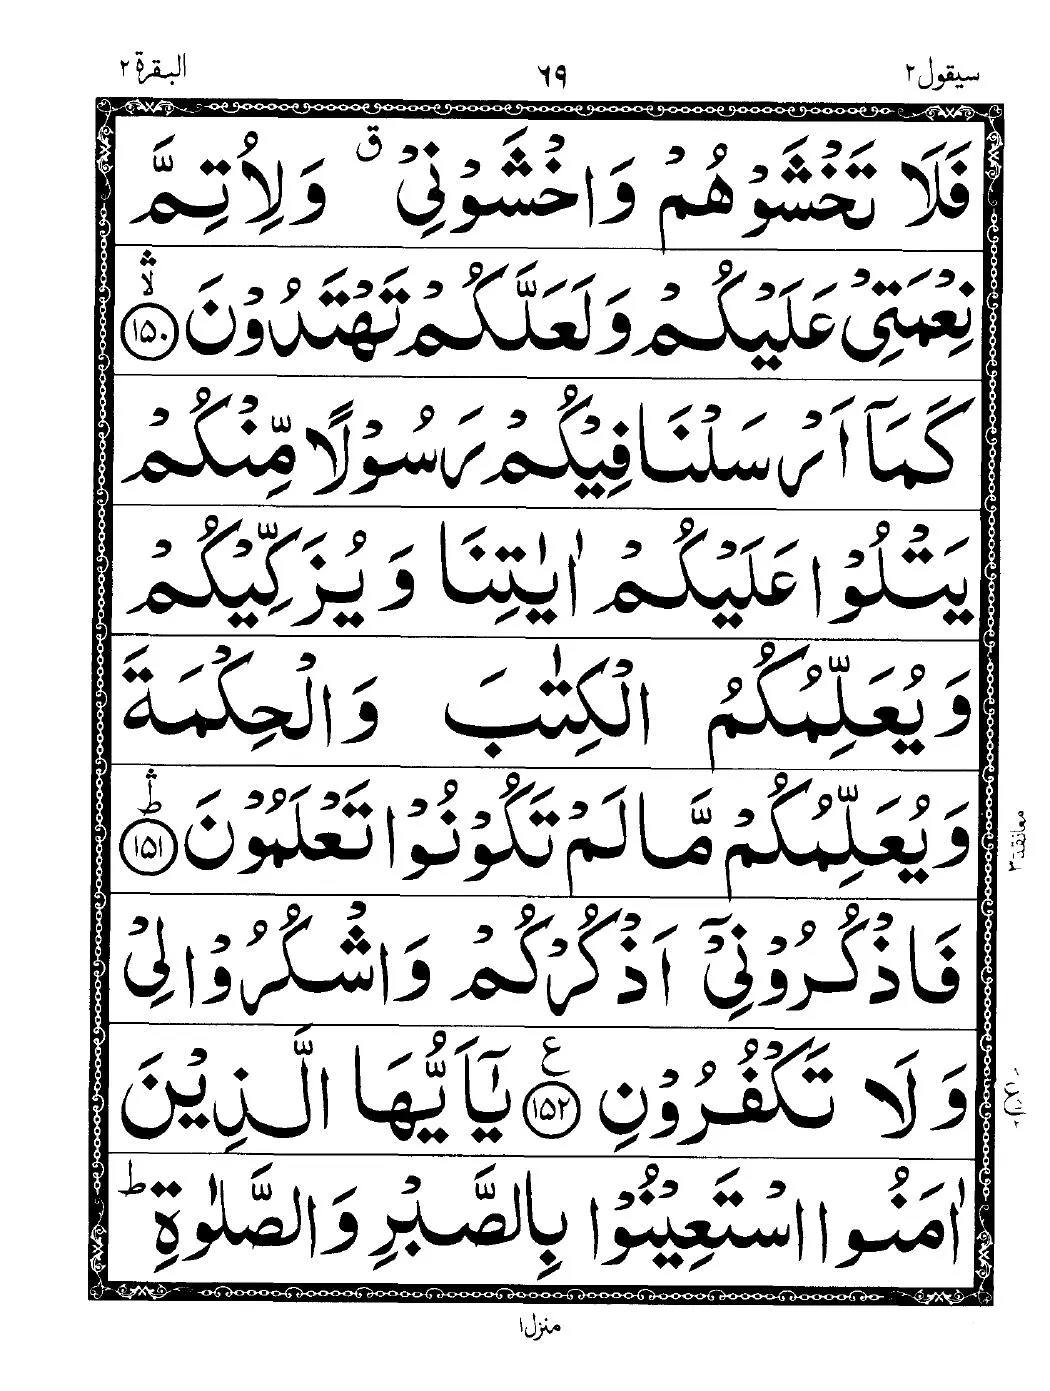 سيقول ٢
٦٩
البقرة ٢
فَلَا تَخْشَوْهُمْ وَاخْشَوْنِيْ ۗ وَلِاُتِمَّ
نِعْمَتِيْ عَلَيْكُمْ وَلَعَلَّكُمْ تَهْتَدُوْنَ ۛۙ ﴿١٥٠﴾
كَمَآ اَرْسَلْنَا فِيْكُمْ رَسُوْلًا مِّنْكُمْ
يَتْلُوْا عَلَيْكُمْ اٰيٰتِنَا وَيُزَكِّيْكُمْ
وَيُعَلِّمُكُمُ الْكِتٰبَ وَالْحِكْمَةَ
وَيُعَلِّمُكُمْ مَّا لَمْ تَكُوْنُوْا تَعْلَمُوْنَ ۛؕ ﴿١٥١﴾
معانقة ٣
فَاذْكُرُوْنِيْٓ اَذْكُرْكُمْ وَاشْكُرُوْا لِيْ
وَلَا تَكْفُرُوْنِ ﴿١٥٢﴾ ع يٰٓاَيُّهَا الَّذِيْنَ
اٰمَنُوا اسْتَعِيْنُوْا بِالصَّبْرِ وَالصَّلٰوةِ ؕ
منزل ١